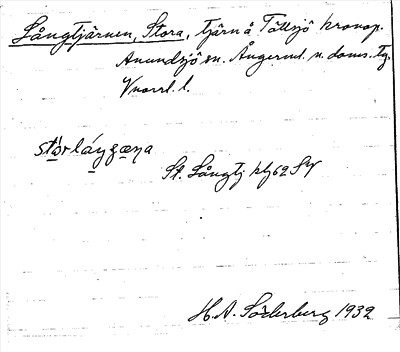 Långtjärnen, Stora, tjärn å Tällsjö kronop.
Anundsjö sn. Ångerml. n. doms. tg.
Vnorrl. l.
St. Långtj kbl 62 SV
H.A. Söderberg 1932